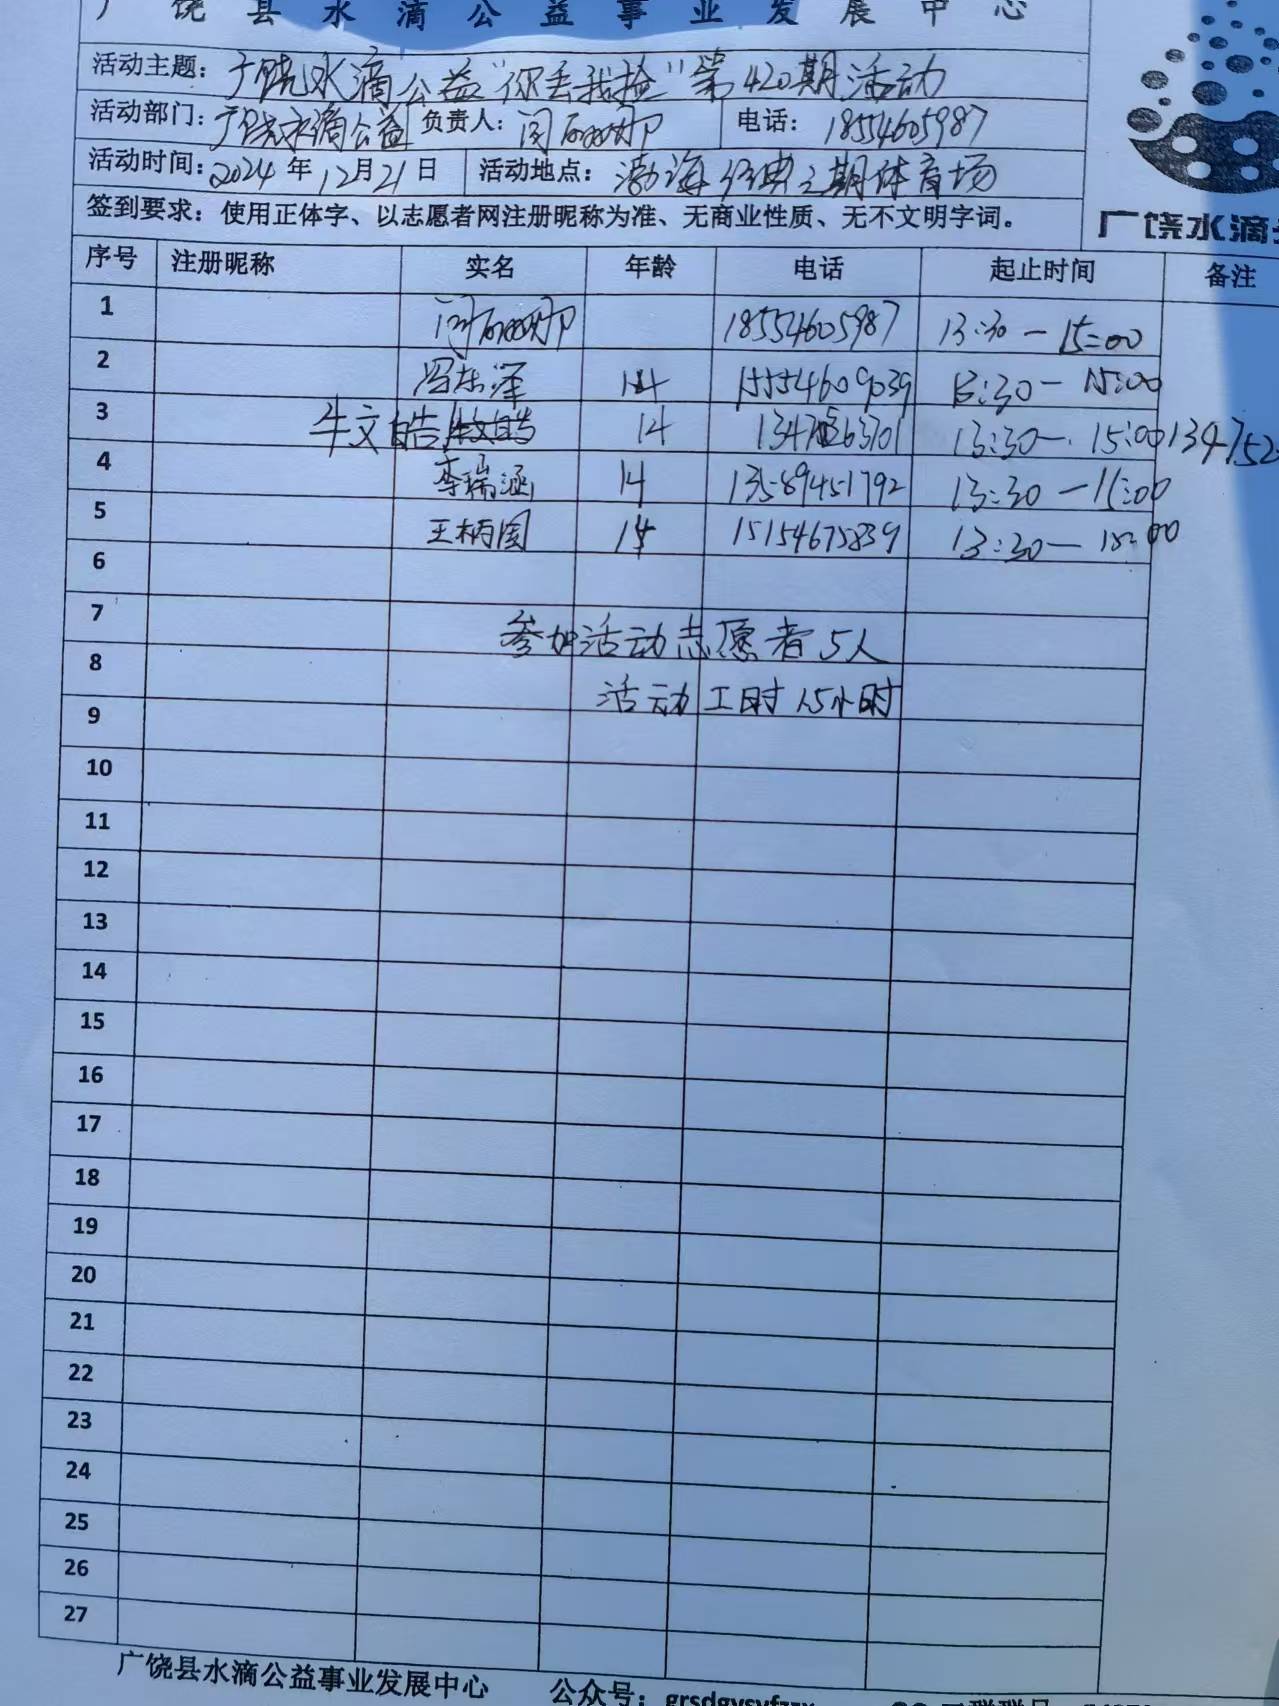 广饶县水滴公益事业发展中心
活动主题：广饶水滴公益“你丢我捡”第420期活动
活动部门：广饶水滴公益 负责人： 电话：18554605987
活动时间：2024年12月21日 活动地点：渤海经典二期体育场
签到要求：使用正体字、以志愿者网注册昵称为准、无商业性质、无不文明字词。
广饶水滴
序号 注册昵称 实名 年龄 电话 起止时间 备注
1 18554605987 13:30—15:00
2 冯东泽 14 15554609039 13:30—15:00
3 牛文皓 牛文皓 14 13:30—15:00 134752
4 李瑞涵 14 13589451792 13:30—15:00
5 王柄图 14 13:30—15:00
6
7 参加活动志愿者5人
8 活动工时1.5小时
9
10
11
12
13
14
15
16
17
18
19
20
21
22
23
24
25
26
27
广饶县水滴公益事业发展中心 公众号：